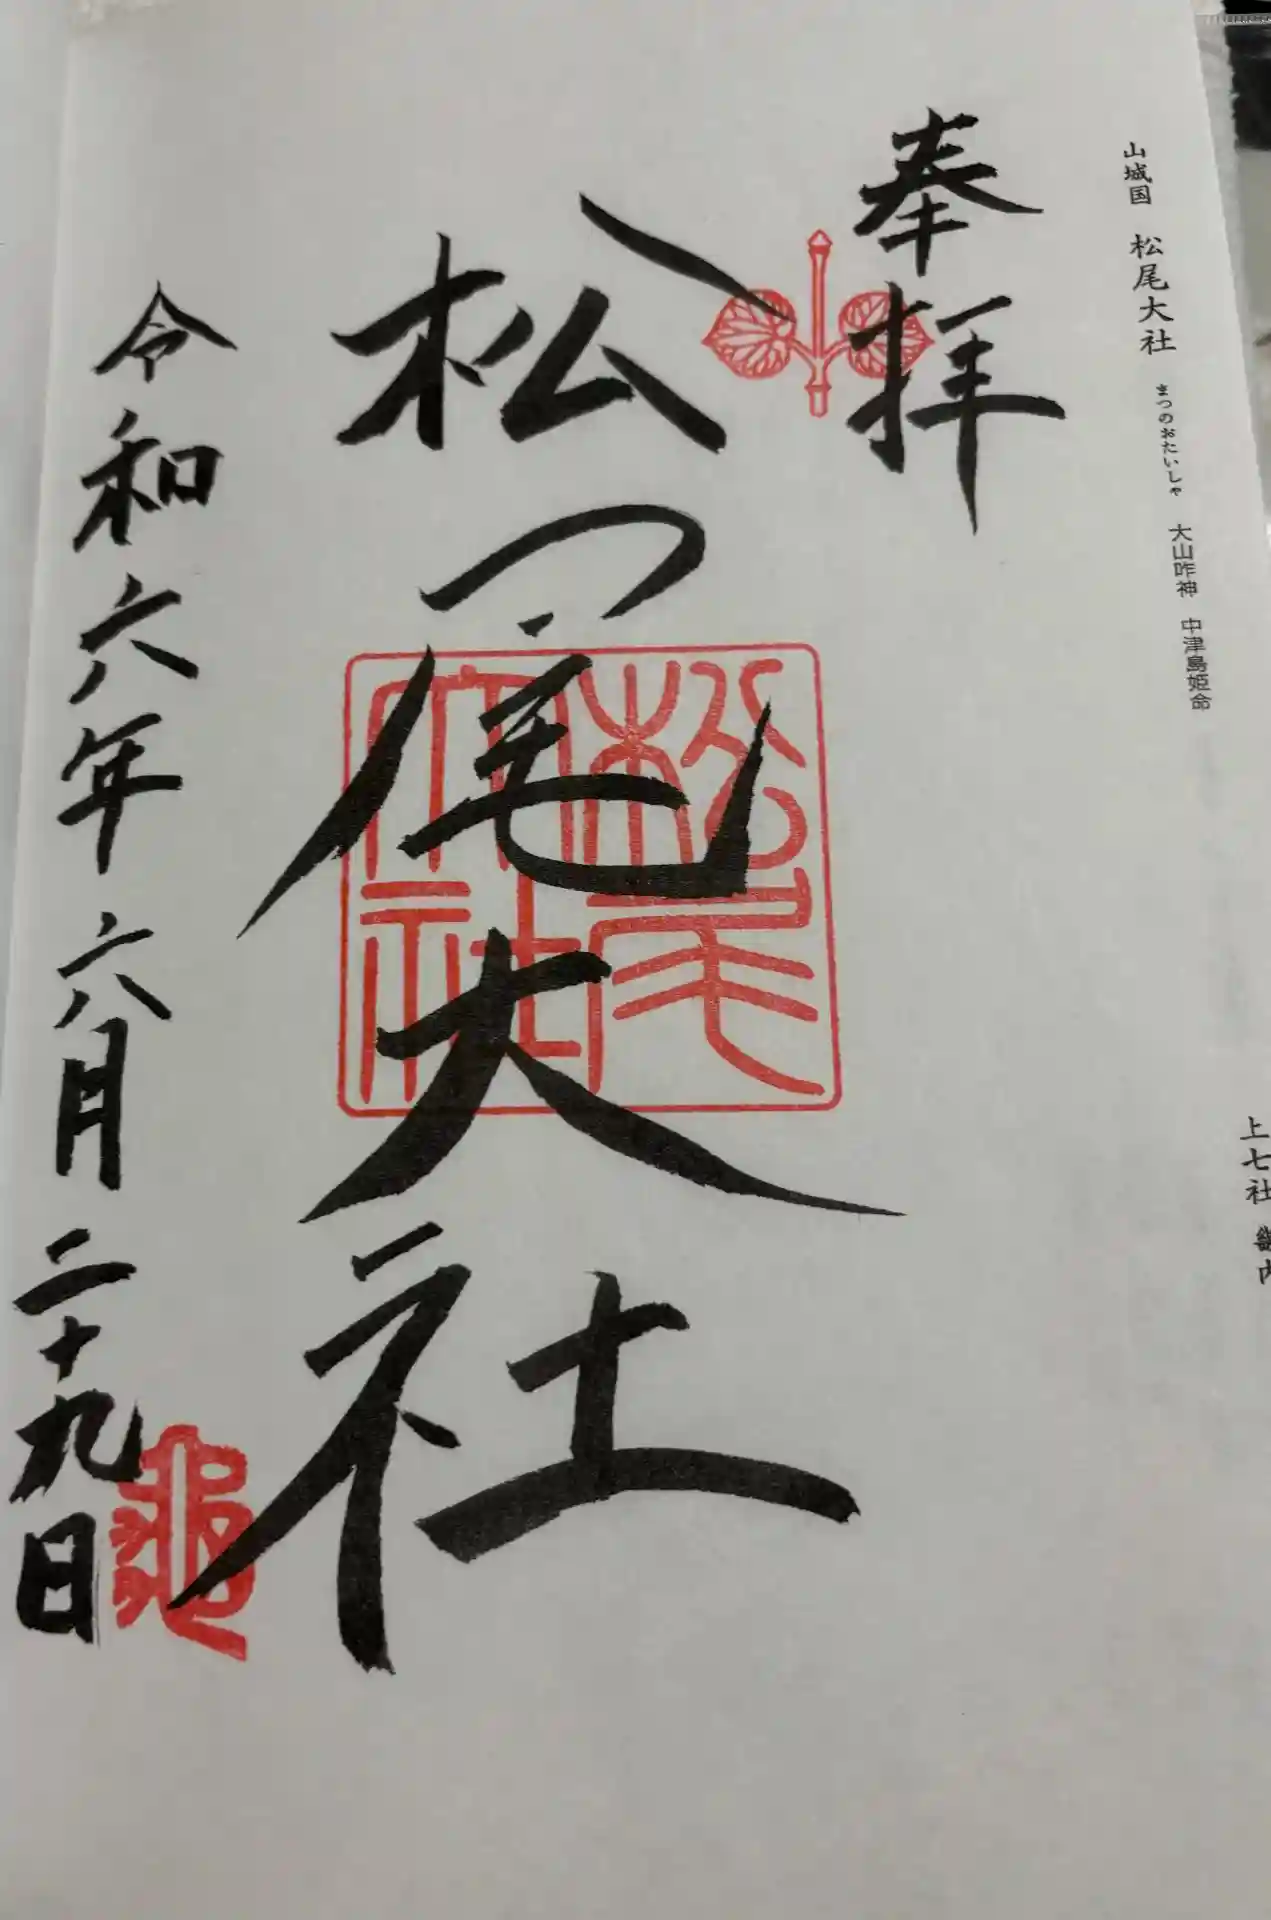 山城国 松尾大社 まつのおたいしゃ 大山咋神 中津島姫命
上七社
奉拝
松尾大社
松尾大社
令和六年六月二十九日